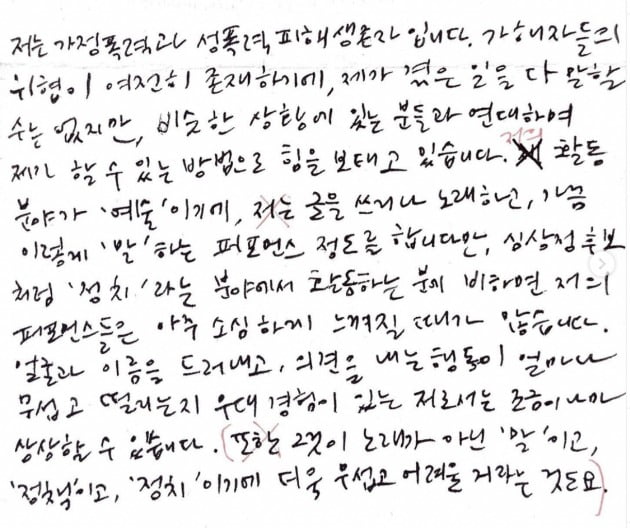 저는 가정폭력과 성폭력 피해생존자 입니다. 가해자들의
위협이 여전히 존재하기에, 제가 겪은 일을 다 말할
수는 없지만, 비슷한 상황에 있는 분들과 연대하여
제가 할 수 있는 방법으로 힘을 보태고 있습니다. 저의 활동
분야가 '예술'이기에, 저는 글을 쓰거나 노래하고, 가끔
이렇게 '말'하는 퍼포먼스 정도를 합니다만, 심상정 후보
처럼 '정치'라는 분야에서 활동하는 분께 비하면 저의
퍼포먼스들은 아주 소심하게 느껴질 때가 많습니다.
얼굴과 이름을 드러내고, 의견을 내는 행동이 얼마나
무섭고 떨리는지 무대 경험이 있는 저로서는 조금이나마
상상할 수 있습니다. (또한 그것이 노래가 아닌 '말'이고,
'정책'이고, '정치'이기에 더욱 무섭고 어려울 거라는 것도요.)